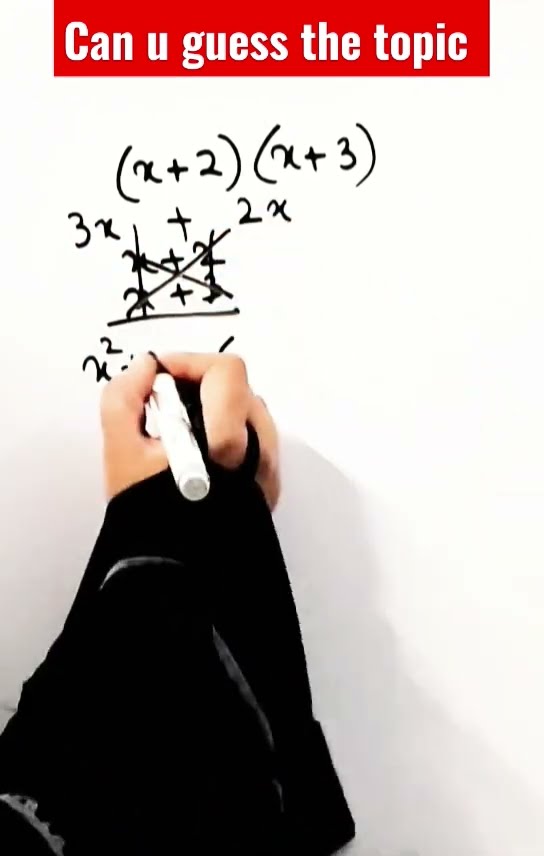 Can u guess the topic
(x+2)(x+3)
3x + 2x
x + 2
x + 3
x²